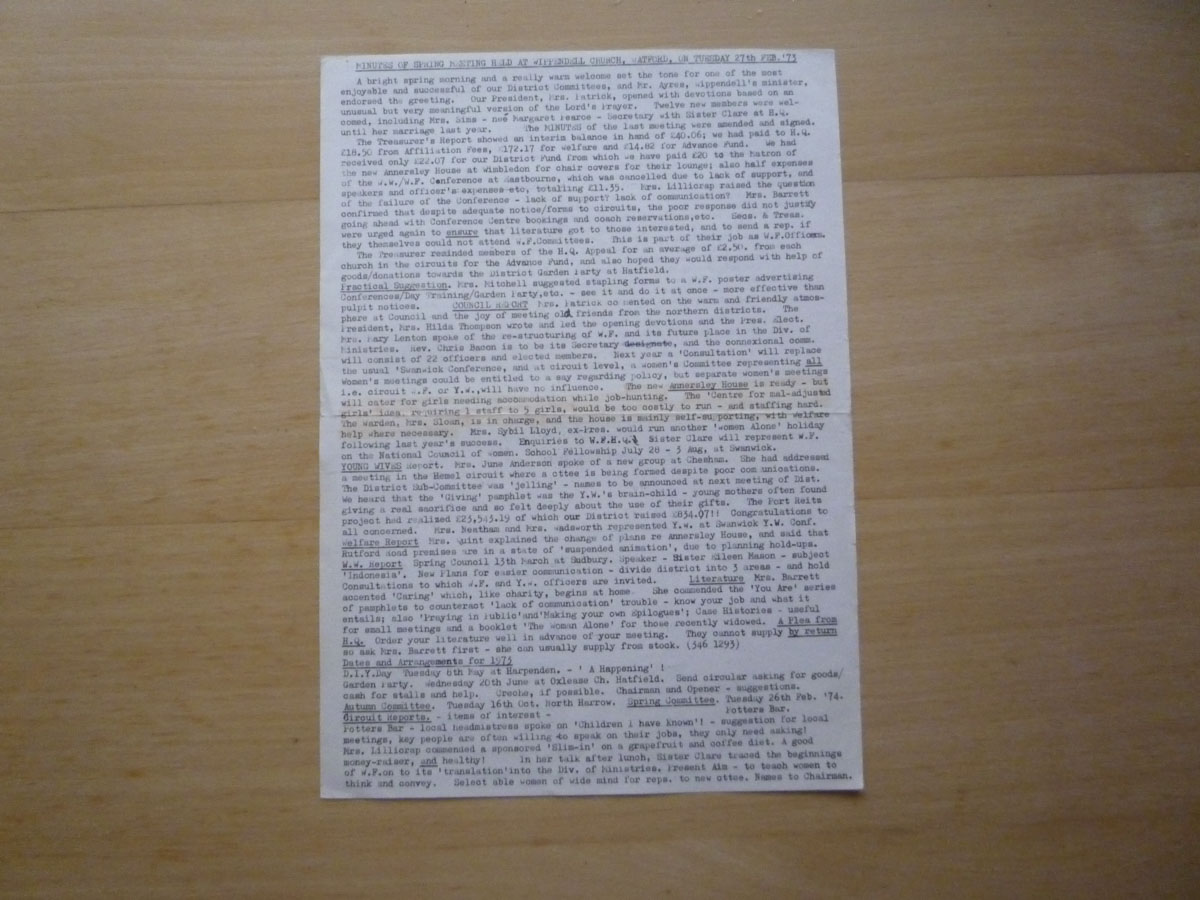 MINUTES OF SPRING MEETING HELD AT WIPPENDELL CHURCH, WATFORD, ON TUESDAY 27th FEB.'73
A bright spring morning and a really warm welcome set the tone for one of the most
enjoyable and successful of our District Committees, and Mr. Ayres, Wippendell's minister,
endorsed the greeting. Our President, Mrs. Patrick, opened with devotions based on an
unusual but very meaningful version of the Lord's Prayer. Twelve new members were wel-
comed, including Mrs. Sims - neé Margaret Pearce - Secretary with Sister Clare at H.Q.
until her marriage last year. The MINUTES of the last meeting were amended and signed.
The Treasurer's Report showed an interim balance in hand of £40.06; we had paid to H.Q.
£18.50 from Affiliation Fees, £172.17 for Welfare and £14.82 for Advance Fund. We had
received only £22.07 for our District Fund from which we have paid £20 to the Matron of
the new Annersley House at Wimbledon for chair covers for their lounge; also half expenses
of the W.W./W.F. Conference at Eastbourne, which was cancelled due to lack of support, and
speakers and officer's expenses etc, totalling £11.35. Mrs. Lillicrap raised the question
of the failure of the Conference - lack of support? lack of communication? Mrs. Barrett
confirmed that despite adequate notice/forms to circuits, the poor response did not justify
going ahead with Conference Centre bookings and coach reservations,etc. Secs. & Treas.
were urged again to ensure that literature got to those interested, and to send a rep. if
they themselves could not attend W.F.Committees. This is part of their job as W.F.Officers.
The Treasurer reminded members of the H.Q. Appeal for an average of £2.50. from each
church in the circuits for the Advance Fund, and also hoped they would respond with help of
goods/donations towards the District Garden Party at Hatfield.
Practical Suggestion. Mrs. Mitchell suggested stapling forms to a W.F. poster advertising
Conferences/Day Training/Garden Party,etc. - see it and do it at once - more effective than
pulpit notices. COUNCIL REPORT Mrs. Patrick commented on the warm and friendly atmos-
phere at Council and the joy of meeting old friends from the northern districts. The
President, Mrs. Hilda Thompson wrote and led the opening devotions and the Pres. Elect.
Mrs. Mary Lenton spoke of the re-structuring of W.F. and its future place in the Div. of
Ministries. Rev. Chris Bacon is to be its Secretary designate, and the connexional comm.
will consist of 22 officers and elected members. Next year a 'Consultation' will replace
the usual 'Swanwick Conference, and at circuit level, a women's Committee representing all
Women's meetings could be entitled to a say regarding policy, but separate women's meetings
i.e. circuit W.F. or Y.W.,will have no influence. The new Annersley House is ready - but
will cater for girls needing accomodation while job-hunting. The 'Centre for mal-adjusted
girls' idea, requiring 1 staff to 5 girls, would be too costly to run - and staffing hard.
The Warden, Mrs. Sloan, is in charge, and the house is mainly self-supporting, with Welfare
help where necessary. Mrs. Sybil Lloyd, ex-Pres. would run another 'Women Alone' holiday
following last year's success. Enquiries to W.F.H.Q. Sister Clare will represent W.F.
on the National Council of Women. School Fellowship July 28 - 3 Aug, at Swanwick.
YOUNG WIVES Report. Mrs. June Anderson spoke of a new group at Chesham. She had addressed
a meeting in the Hemel circuit where a cttee is being formed despite poor communications.
The District Sub-Committee was 'jelling' - names to be announced at next meeting of Dist.
We heard that the 'Giving' pamphlet was the Y.W.'s brain-child - young mothers often found
giving a real sacrifice and so felt deeply about the use of their gifts. The Port Reitz
project had realized £23,543.19 of which our District raised £834.07!! Congratulations to
all concerned. Mrs. Neatham and Mrs. Wadsworth represented Y.W. at Swanwick Y.W. Conf.
Welfare Report Mrs. Quint explained the change of plans re Annersley House, and said that
Rutford Road premises are in a state of 'suspended animation', due to planning hold-ups.
W.W. Report Spring Council 13th March at Sudbury. Speaker - Sister Eileen Mason - subject
'Indonesia'. New Plans for easier communication - divide district into 3 areas - and hold
Consultations to which W.F. and Y.W. officers are invited. Literature Mrs. Barrett
accented 'Caring' which, like charity, begins at home. She commended the 'You Are' series
of pamphlets to counteract 'lack of communication' trouble - know your job and what it
entails; also 'Praying in Public'and'Making your own Epilogues'; Case Histories - useful
for small meetings and a booklet 'The Woman Alone' for those recently widowed. A Plea from
H.Q. Order your literature well in advance of your meeting. They cannot supply by return
so ask Mrs. Barrett first - she can usually supply from stock. (346 1293)
Dates and Arrangements for 1973
D.I.Y.Day Tuesday 8th May at Harpenden. - ' A Happening' !
Garden Party. Wednesday 20th June at Oxlease Ch. Hatfield. Send circular asking for goods/
cash for stalls and help. Creche, if possible. Chairman and Opener - suggestions.
Autumn Committee. Tuesday 16th Oct. North Harrow. Spring Committee. Tuesday 26th Feb. '74.
Potters Bar.
Circuit Reports. - items of interest -
Potters Bar - local headmistress spoke on 'Children I have known'! - suggestion for local
meetings, key people are often willing to speak on their jobs, they only need asking!
Mrs. Lillicrap commended a sponsored 'Slim-in' on a grapefruit and coffee diet. A good
money-raiser, and healthy! In her talk after lunch, Sister Clare traced the beginnings
of W.F.on to its 'translation'into the Div. of Ministries. Present Aim - to teach women to
think and convey. Select able women of wide mind for reps. to new cttee. Names to Chairman.